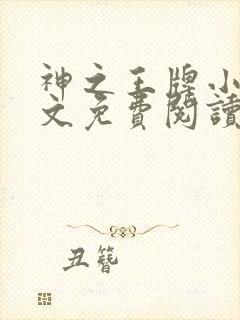 神之王牌小
文免費閱讀
丑簪